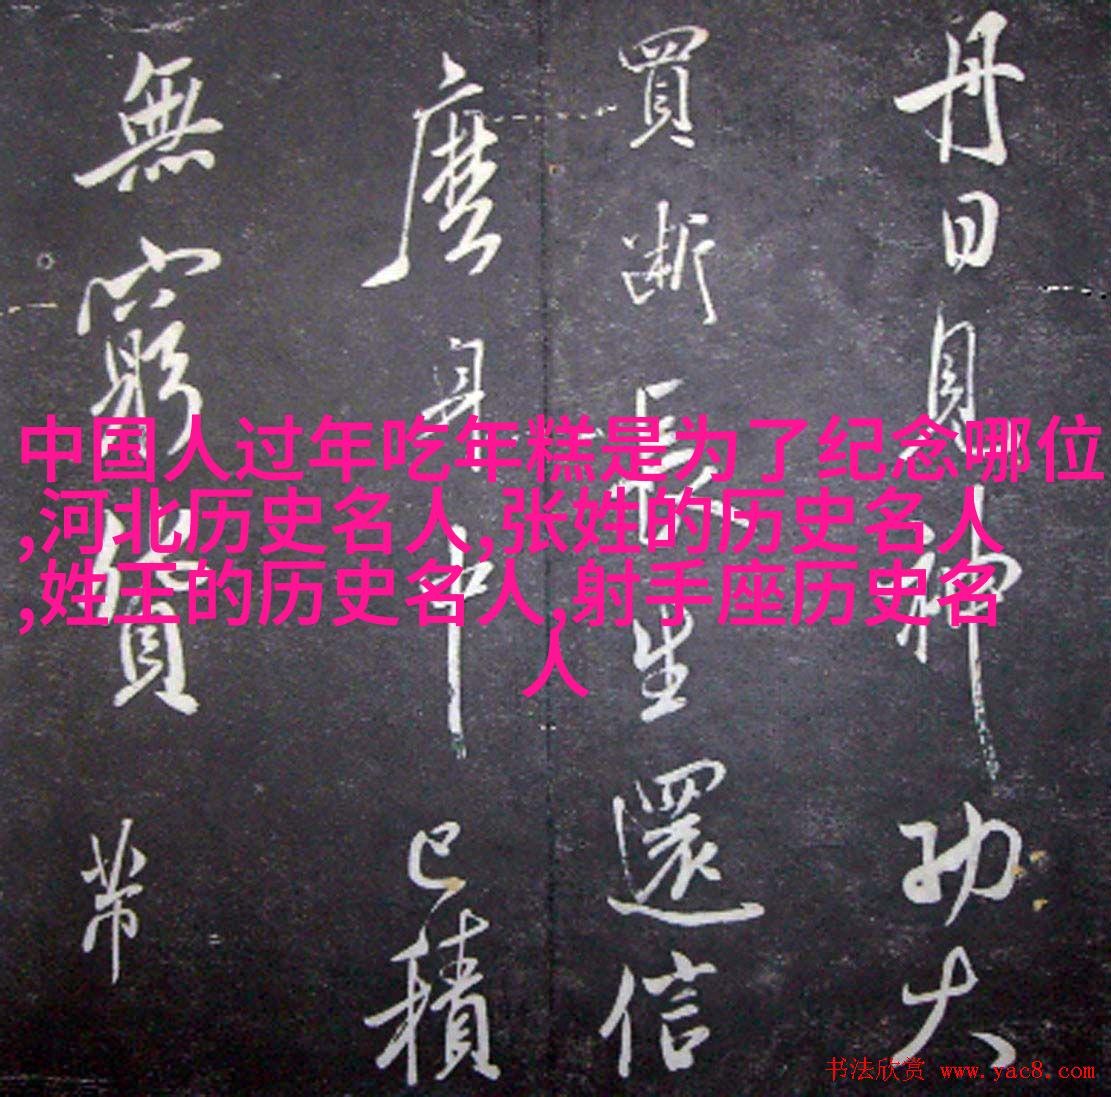 丹日自神功大
買断長生還信
麼身中已積
無窮
中国人过年吃年糕是为了纪念哪位
,河北历史名人,张姓的历史名人
,姓王的历史名人,射手座历史名
人
书法欣赏 www.yac8.com